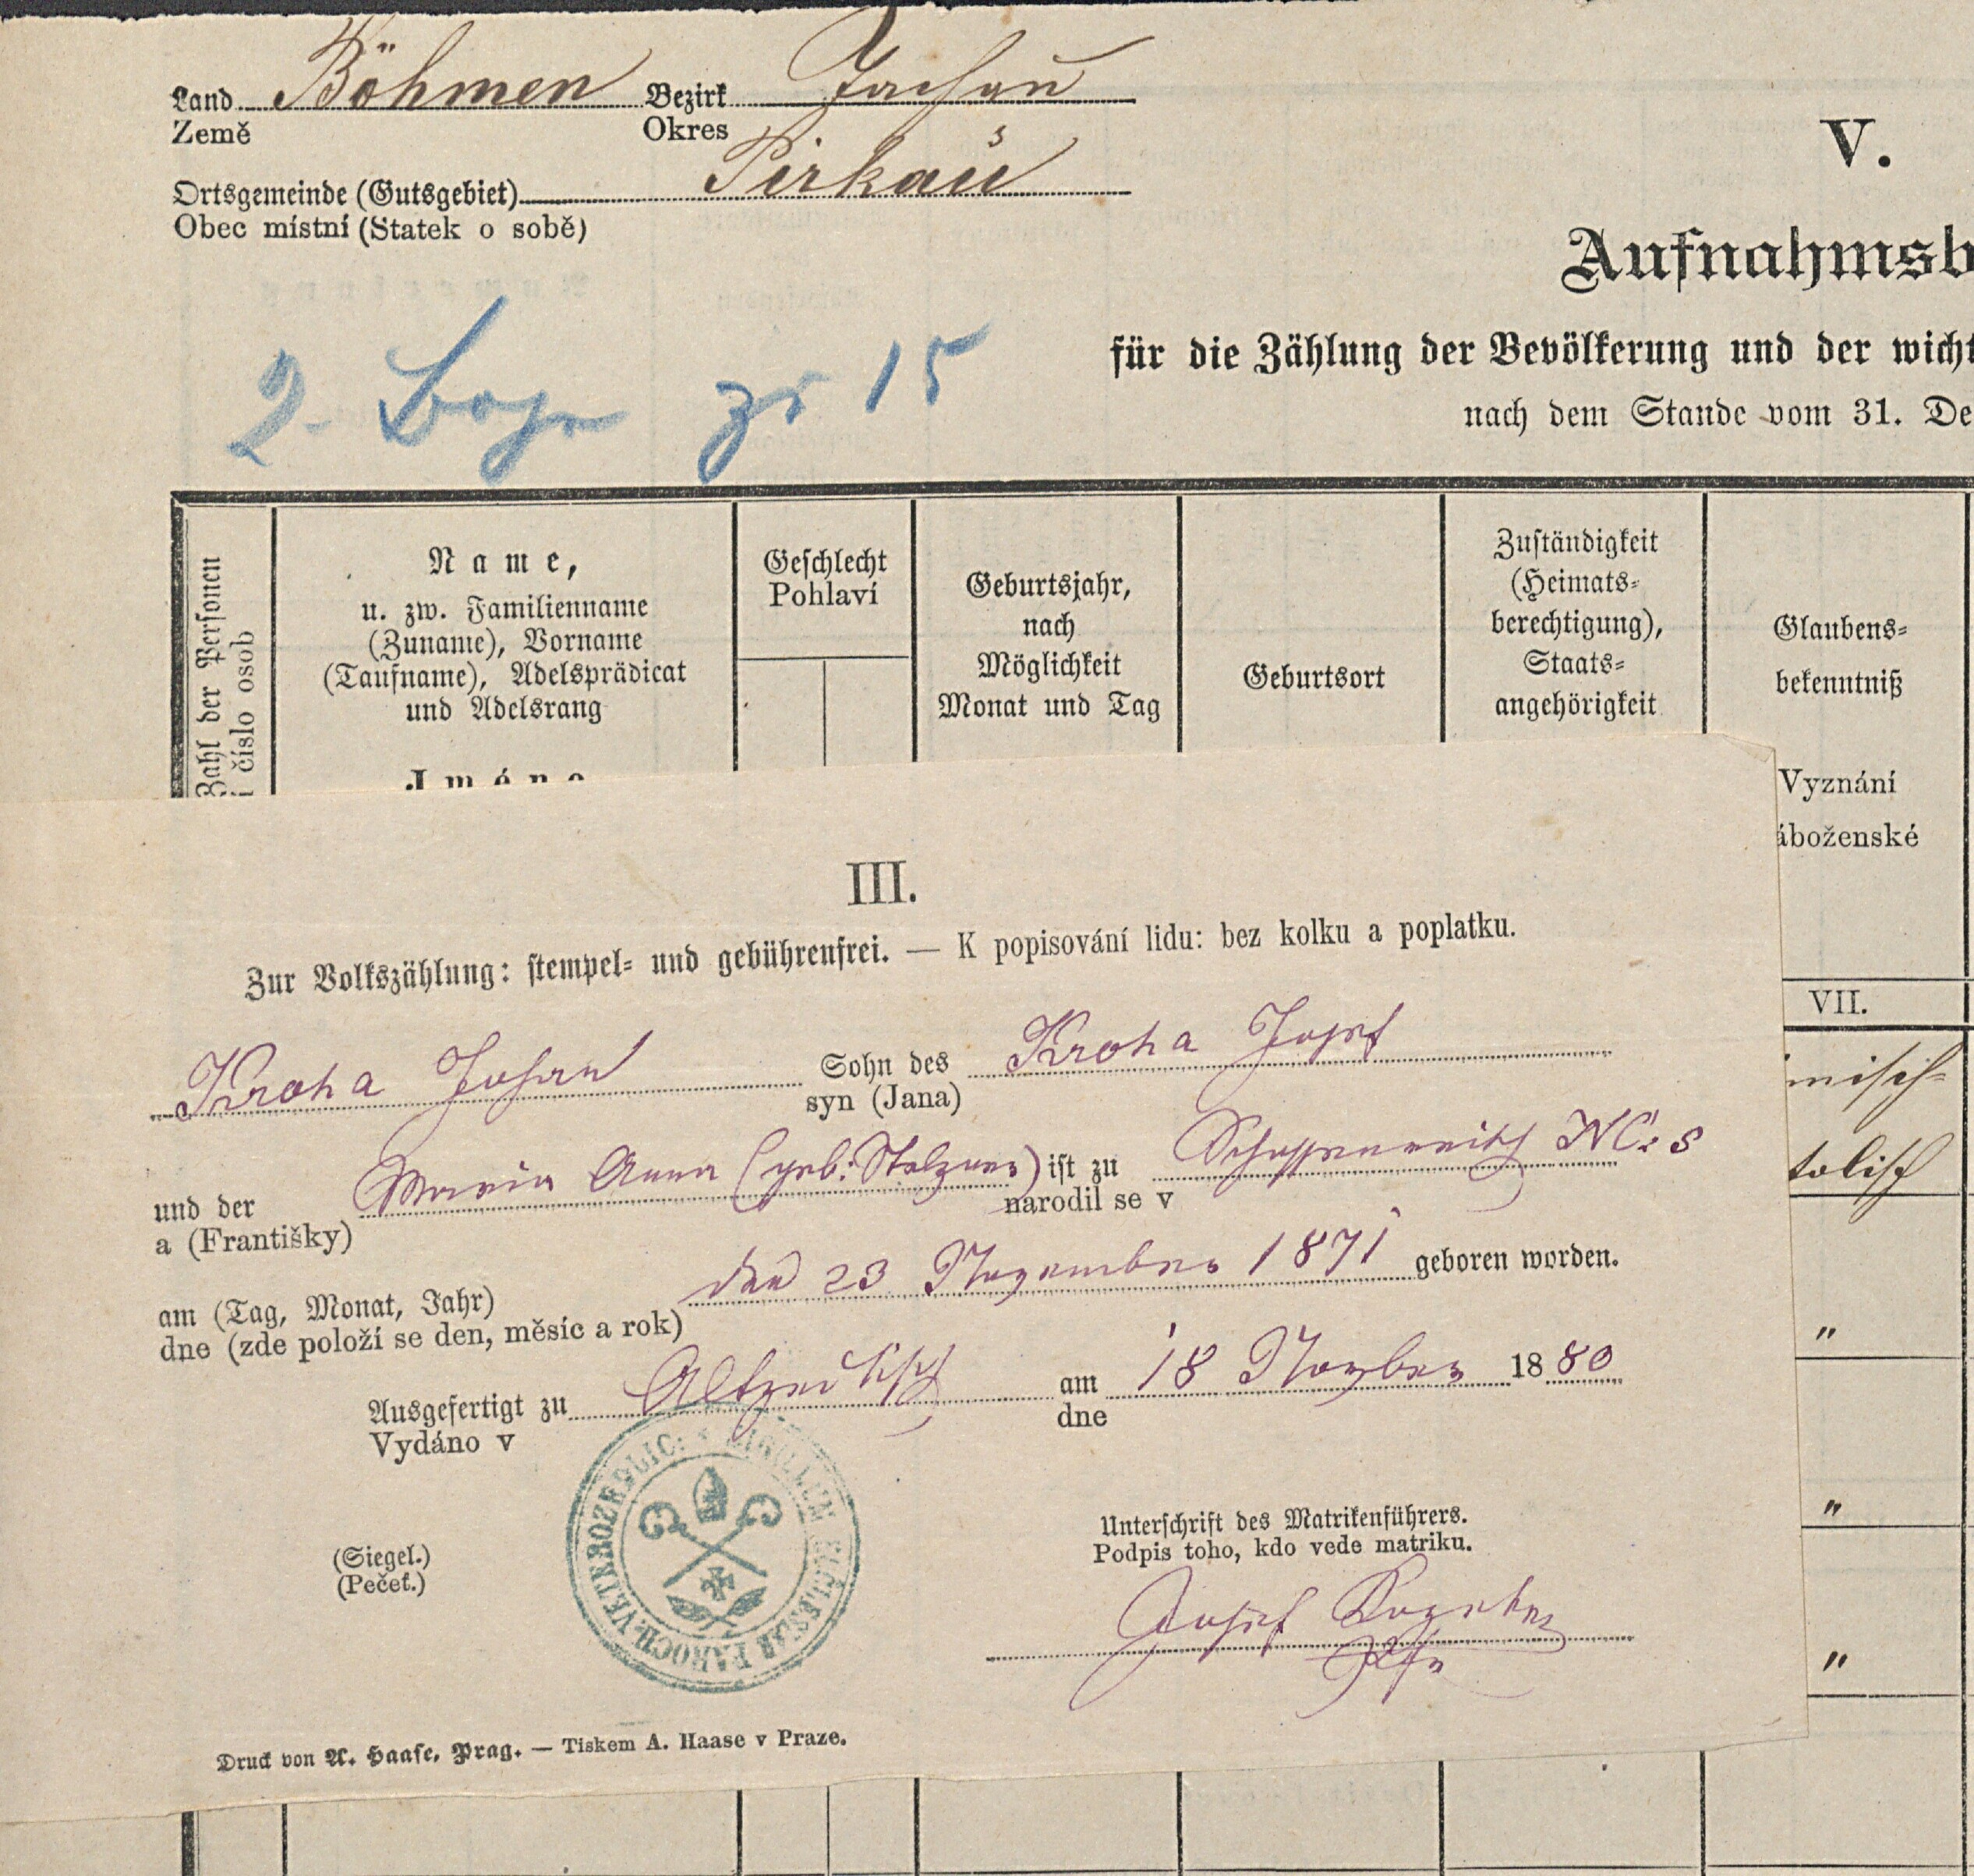 Land Böhmen Bezirk Tachau
Země Okres
Ortsgemeinde (Gutsgebiet) Pirkau
Obec místní (Statek o sobě)
V.
Aufnahmsb
für die Zählung der Bevölkerung und der wicht
nach dem Stande vom 31. De
2. Bogen zu 15
Zahl der Personen
číslo osob
Name,
u. zw. Familienname
(Zuname), Vorname
(Taufname), Adelsprädicat
und Adelsrang
Jméno
Geschlecht
Pohlaví
Geburtsjahr,
nach
Möglichkeit
Monat und Tag
Geburtsort
Zuständigkeit
(Heimats-
berechtigung),
Staats-
angehörigkeit
Glaubens-
bekenntniß
Vyznání
áboženské
VII.
misch-
tolisch
"
"
"
III.
Zur Volkszählung: stempel- und gebührenfrei. — K popisování lidu: bez kolku a poplatku.
Kroha Johann Sohn des Kroha Josef
syn (Jana)
und der Maria Anna (geb: Stelzner) ist zu NC: 8
a (Františky) narodil se v
am (Tag, Monat, Jahr) den 23 November 1871 geboren worden.
dne (zde položí se den, měsíc a rok)
Ausgefertigt zu Altzedlisch am 18 November 1880
Vydáno v dne
SIGILLUM ECCLESIAE PAROCH. VETEROZEDLIC:
(Siegel.)
(Pečeť.)
Unterschrift des Matrikenführers.
Podpis toho, kdo vede matriku.
Josef
Druck von A. Haase, Prag. — Tiskem A. Haase v Praze.